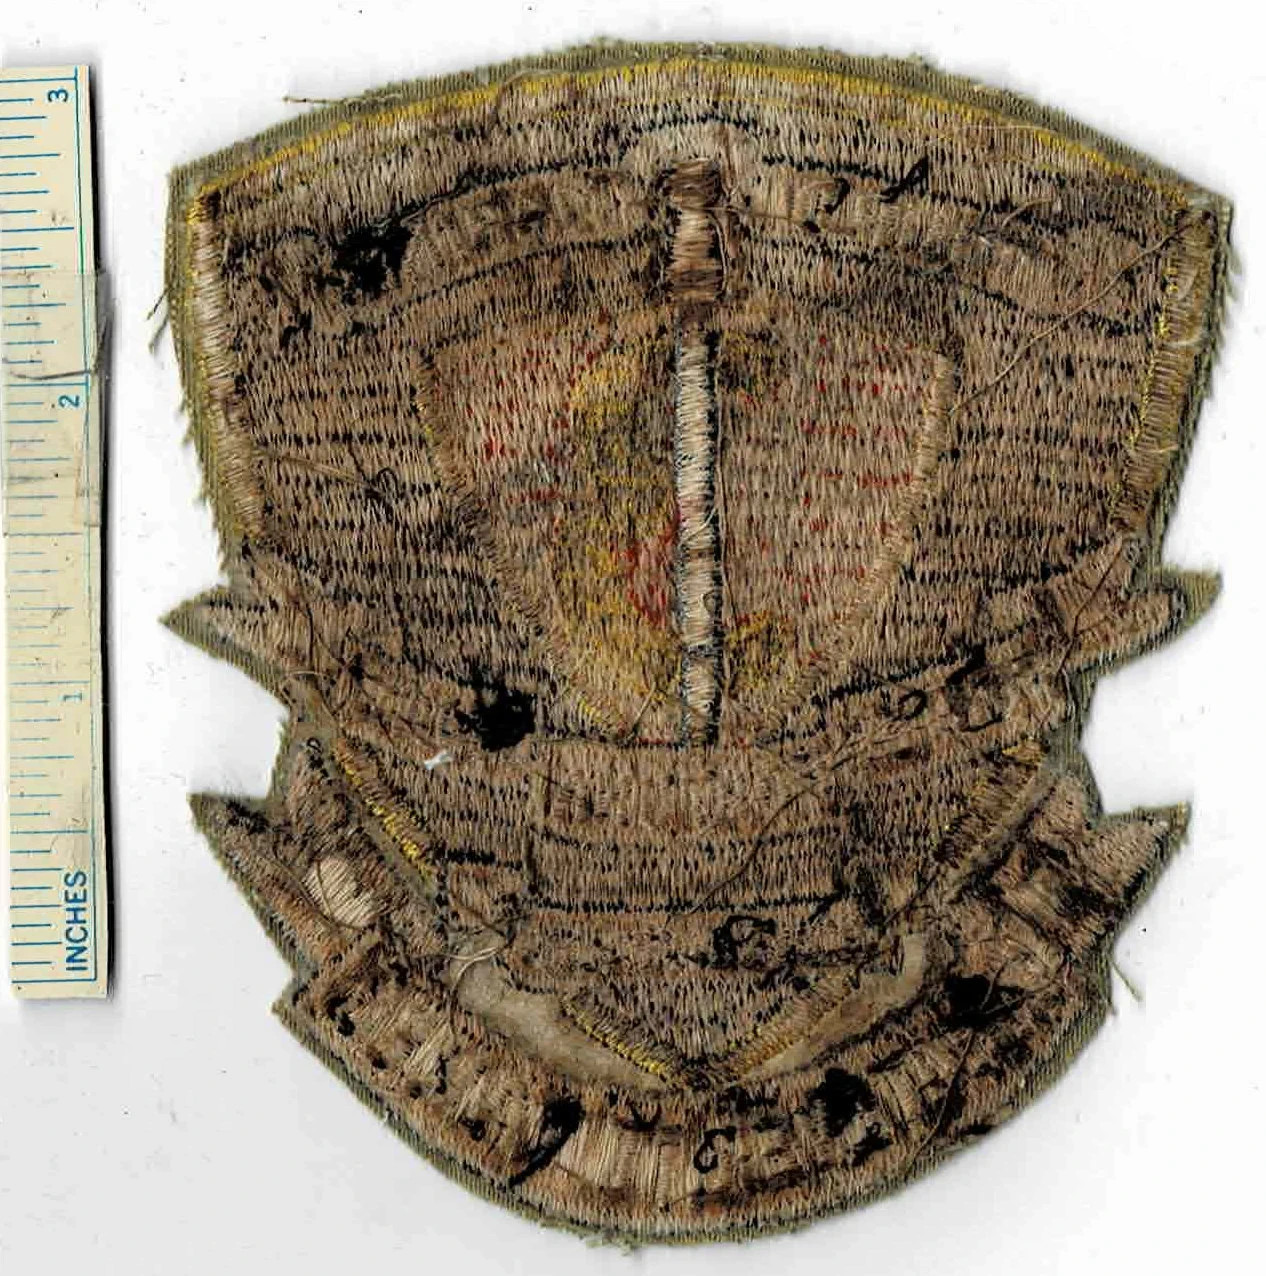 3
2
1
INCHES